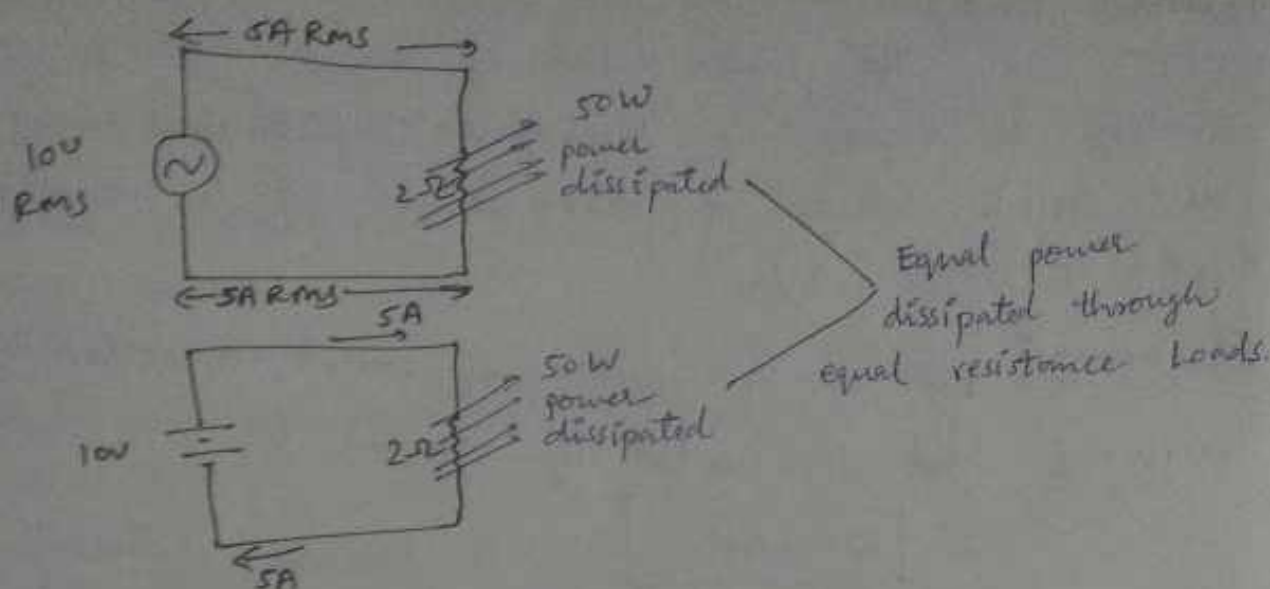 5A Rms
10V
Rms
2Ω
50W
power
dissipated
5A Rms
5A
10V
2Ω
50W
power
dissipated
5A
Equal power
dissipated through
equal resistance Loads.